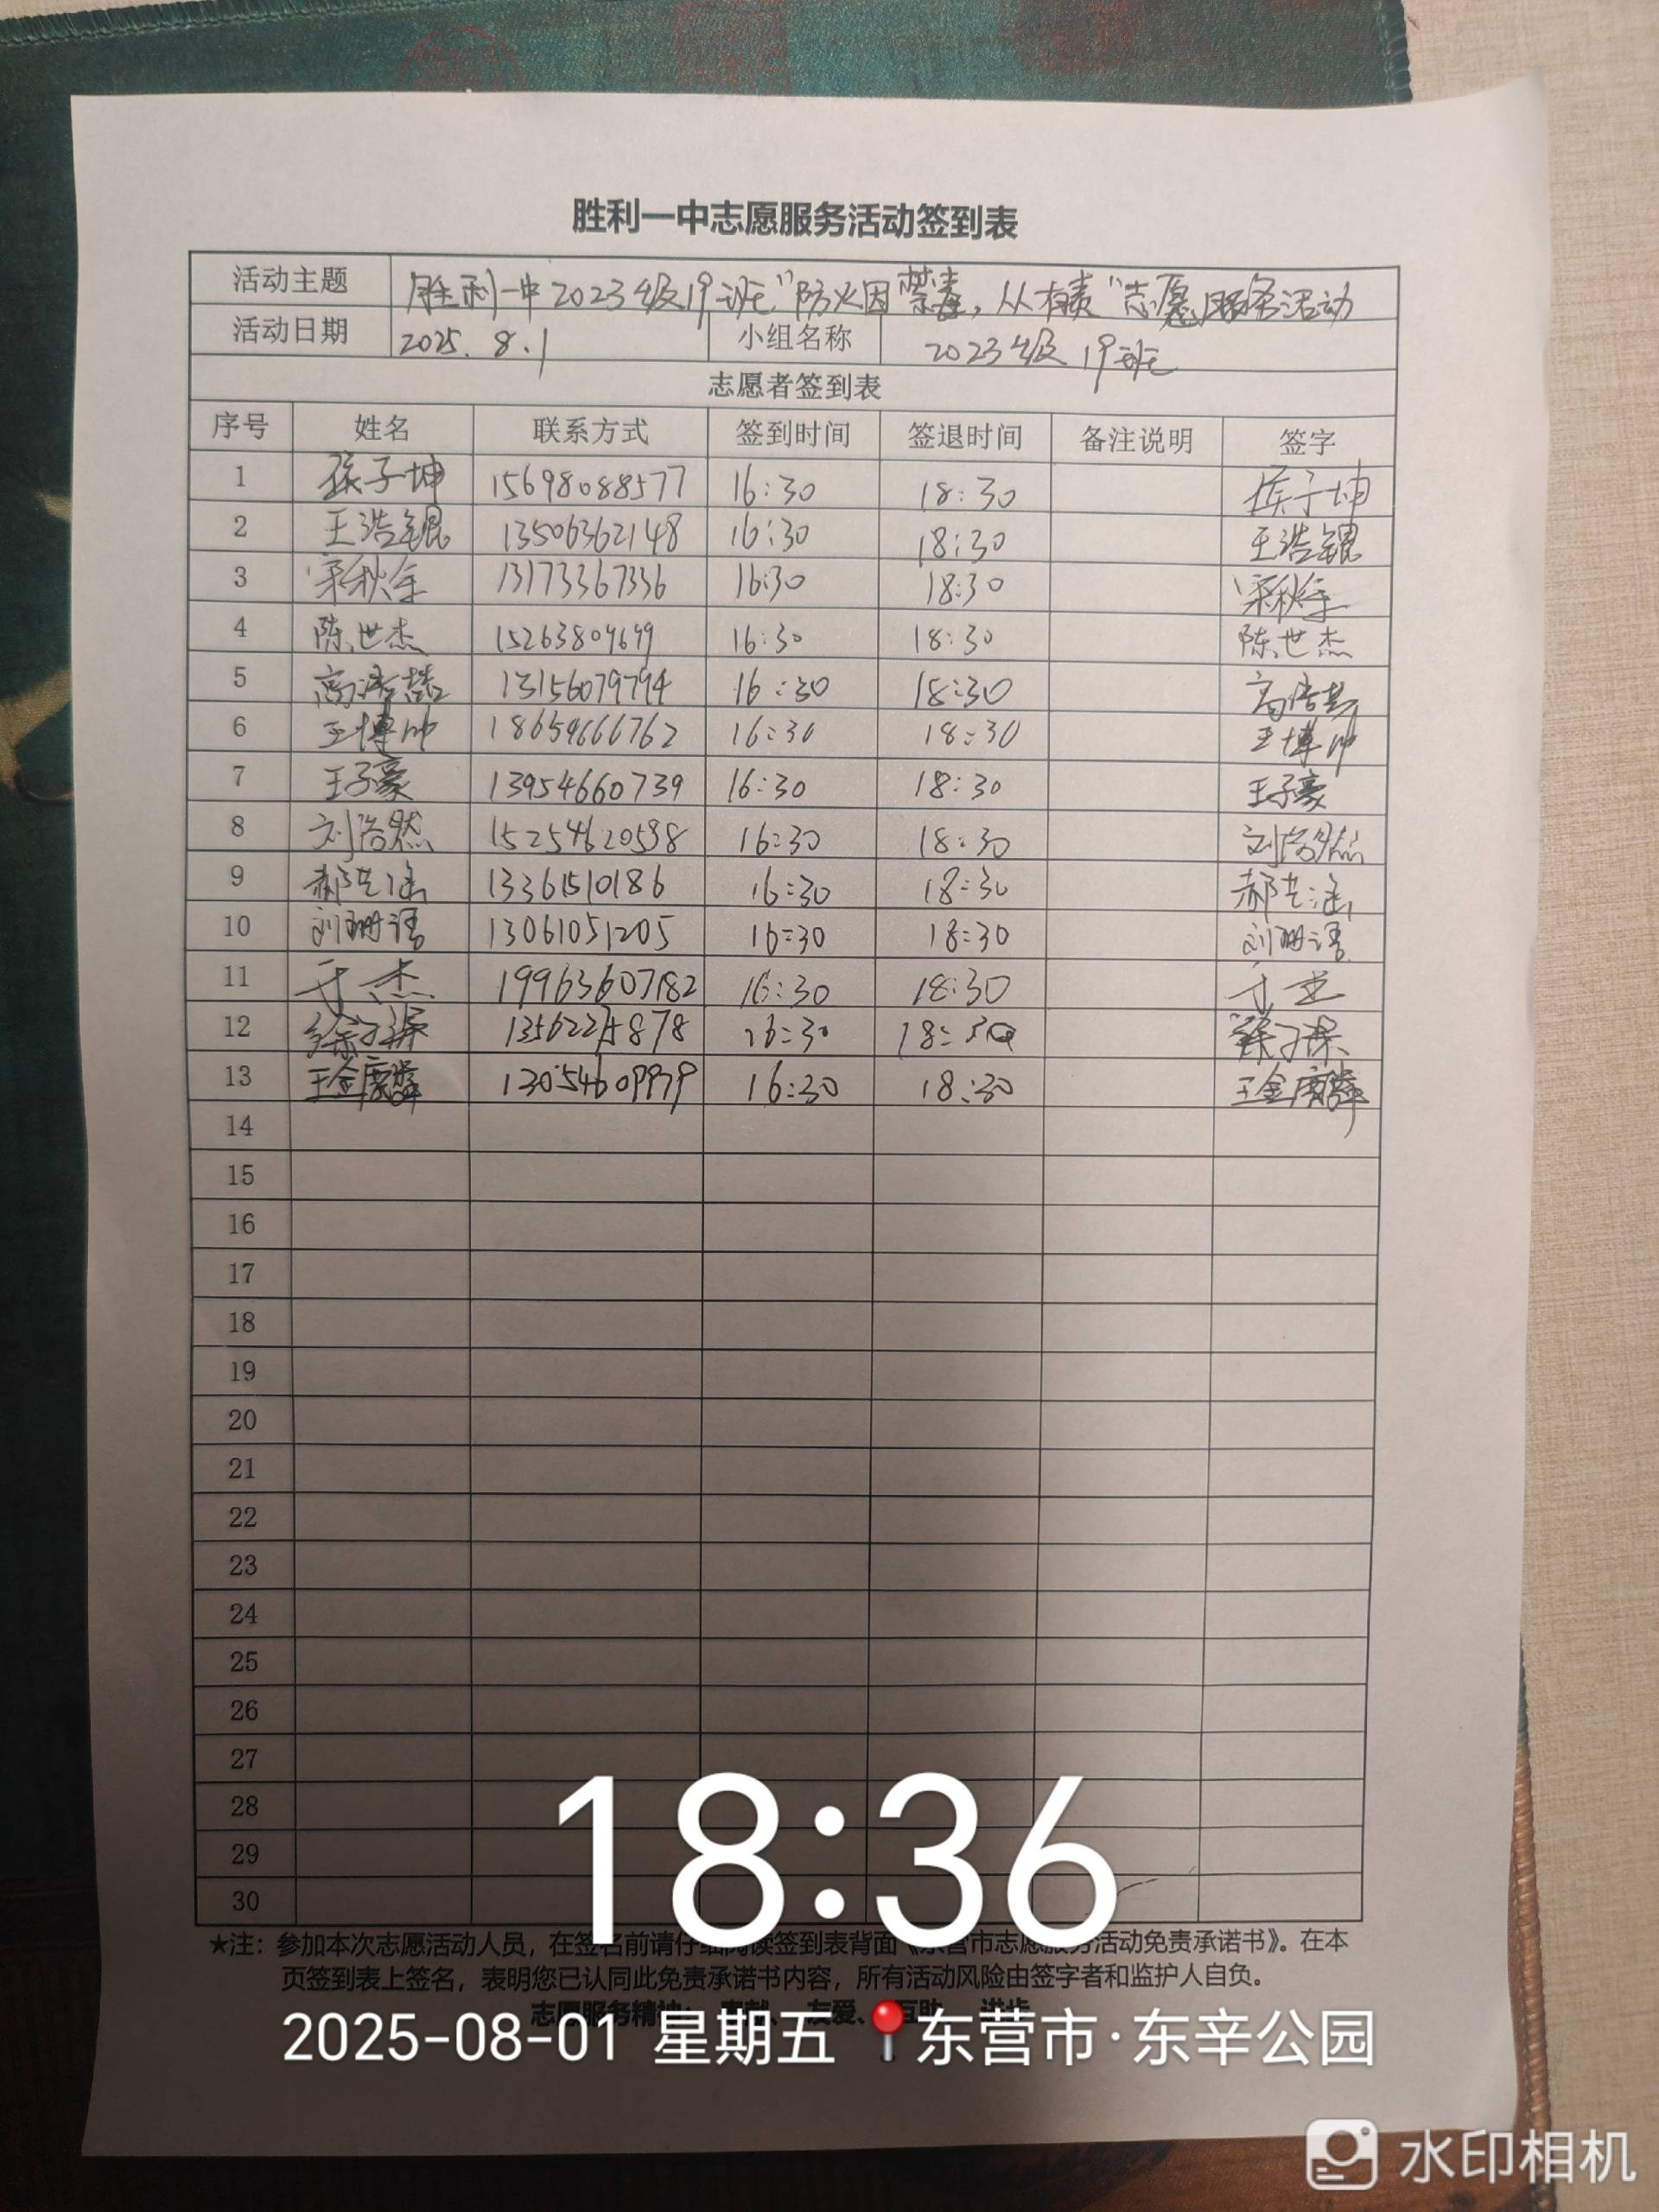 胜利一中志愿服务活动签到表
活动主题 胜利一中2023级19班"防火因禁毒，从有责"志愿服务活动
活动日期 2025.8.1 小组名称 2023级19班
志愿者签到表
序号 姓名 联系方式 签到时间 签退时间 备注说明 签字
1 子坤 15698088577 16:30 18:30 子坤
2 王浩锟 13506362148 16:30 18:30 王浩锟
3 宋秋年 13173367336 16:30 18:30 宋秋年
4 陈世杰 15263809699 16:30 18:30 陈世杰
5 高浩喆 13156079794 16:30 18:30 高浩喆
6 王博帅 18659666762 16:30 18:30 王博帅
7 王子豪 13954660739 16:30 18:30 王子豪
8 刘浩然 15254620598 16:30 18:30 刘浩然
9 郝艺涵 13361510186 16:30 18:30 郝艺涵
10 刘珊语 13061051205 16:30 18:30 刘珊语
11 于杰 19963607182 16:30 18:30 于杰
12 徐子 16:30 18:30 徐子
13 王金麟 13054609979 16:30 18:30 王金麟
14
15
16
17
18
19
20
21
22
23
24
25
26
27
28
29
30
18:36
★注：参加本次志愿活动人员，在签名前请仔细阅读签到表背面《东营市志愿服务活动免责承诺书》。在本
页签到表上签名，表明您已认同此免责承诺书内容，所有活动风险由签字者和监护人自负。
志愿服务精神：奉献、友爱、互助、进步
2025-08-01 星期五 东营市·东辛公园
水印相机